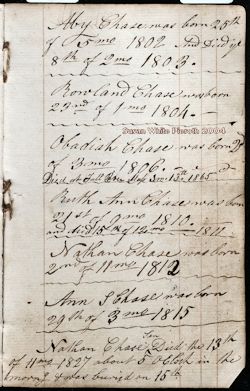 Aby Chase was born 25th
of 5mo 1802 and Died ye
8th of 2mo 1803.
Rowland Chase was born
22nd of 1mo 1804.
Susan White Pieroth 2004
Obadiah Chase was born
of 3mo 1806.
Died at Fall River Mass 3mo 13th 1865
Ruth Ann Chase was born
21st of 9mo 1810.
and died 15th of 12mo 1811
Nathan Chase was born
2nd of 11mo 1812
Ann S Chase was born
29th of 3mo 1815
Nathan Chase Died the 13th
of 11mo 1827 about 6 oClock in the
morng & was buried on 15th